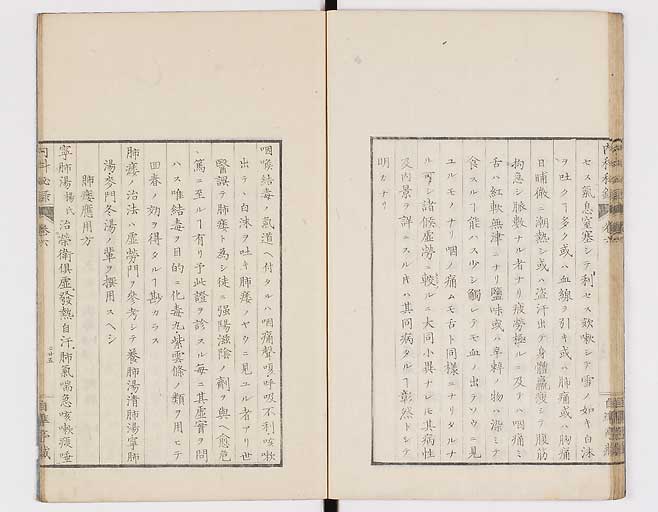 セス氣息窒塞シテ利セス欬嗽シテ雪ノ如キ白沫
ヲ吐クヿ多ク或ハ血線ヲ引キ或ハ肺痛或ハ胸痛
日晡微ニ潮熱シ或ハ盗汗出テ身體羸瘦シテ腹筋
拘急シ脈數ナル者ナリ疲勞極ルニ及テハ咽痛ミ
舌ハ紅軟無津ニナリ鹽味或ハ辛辣ノ物ハ染ミテ
食スルヿ能ハス少シ觸レテモ血ノ出テソウニ見
ユルモノナリ咽ノ痛ムモ舌ト同樣ニナリタルナ
ルヘシ諸候虛勞ニ較ルニ大同小異ナレ𪜈其病性
及内景ヲ詳ニスル𪜈ハ其同病タルヿ彰然トシテ
明カナリ
咽喉結毒ノ氣道ヘ付タルハ咽痛聲嗄呼吸不利咳嗽
出テ、白沫ヲ吐キ肺痿ノヤウニ見ユル者アリ世
醫誤テ肺痿ト為シ徒ニ强陽滋陰ノ劑ヲ與ヘ愈危
篤ニ至ルヿ有リ予此證ヲ診スル每ニ其虛實ヲ問
ハス唯結毒ヲ目的ニ化毒丸紫雲條ノ類ヲ用ヒテ
回春ノ効ヲ得タルヿ尠カラス
肺痿ノ治法ハ虛勞門ヲ參考シテ養肺湯清肺湯寧肺
湯麥門冬湯ノ輩ヲ撰用スヘシ
肺痿應用方
寧肺湯楊氏治榮衛俱虛發熱自汗肺氣喘急咳嗽痰唾
内科秘録
卷六
二十五